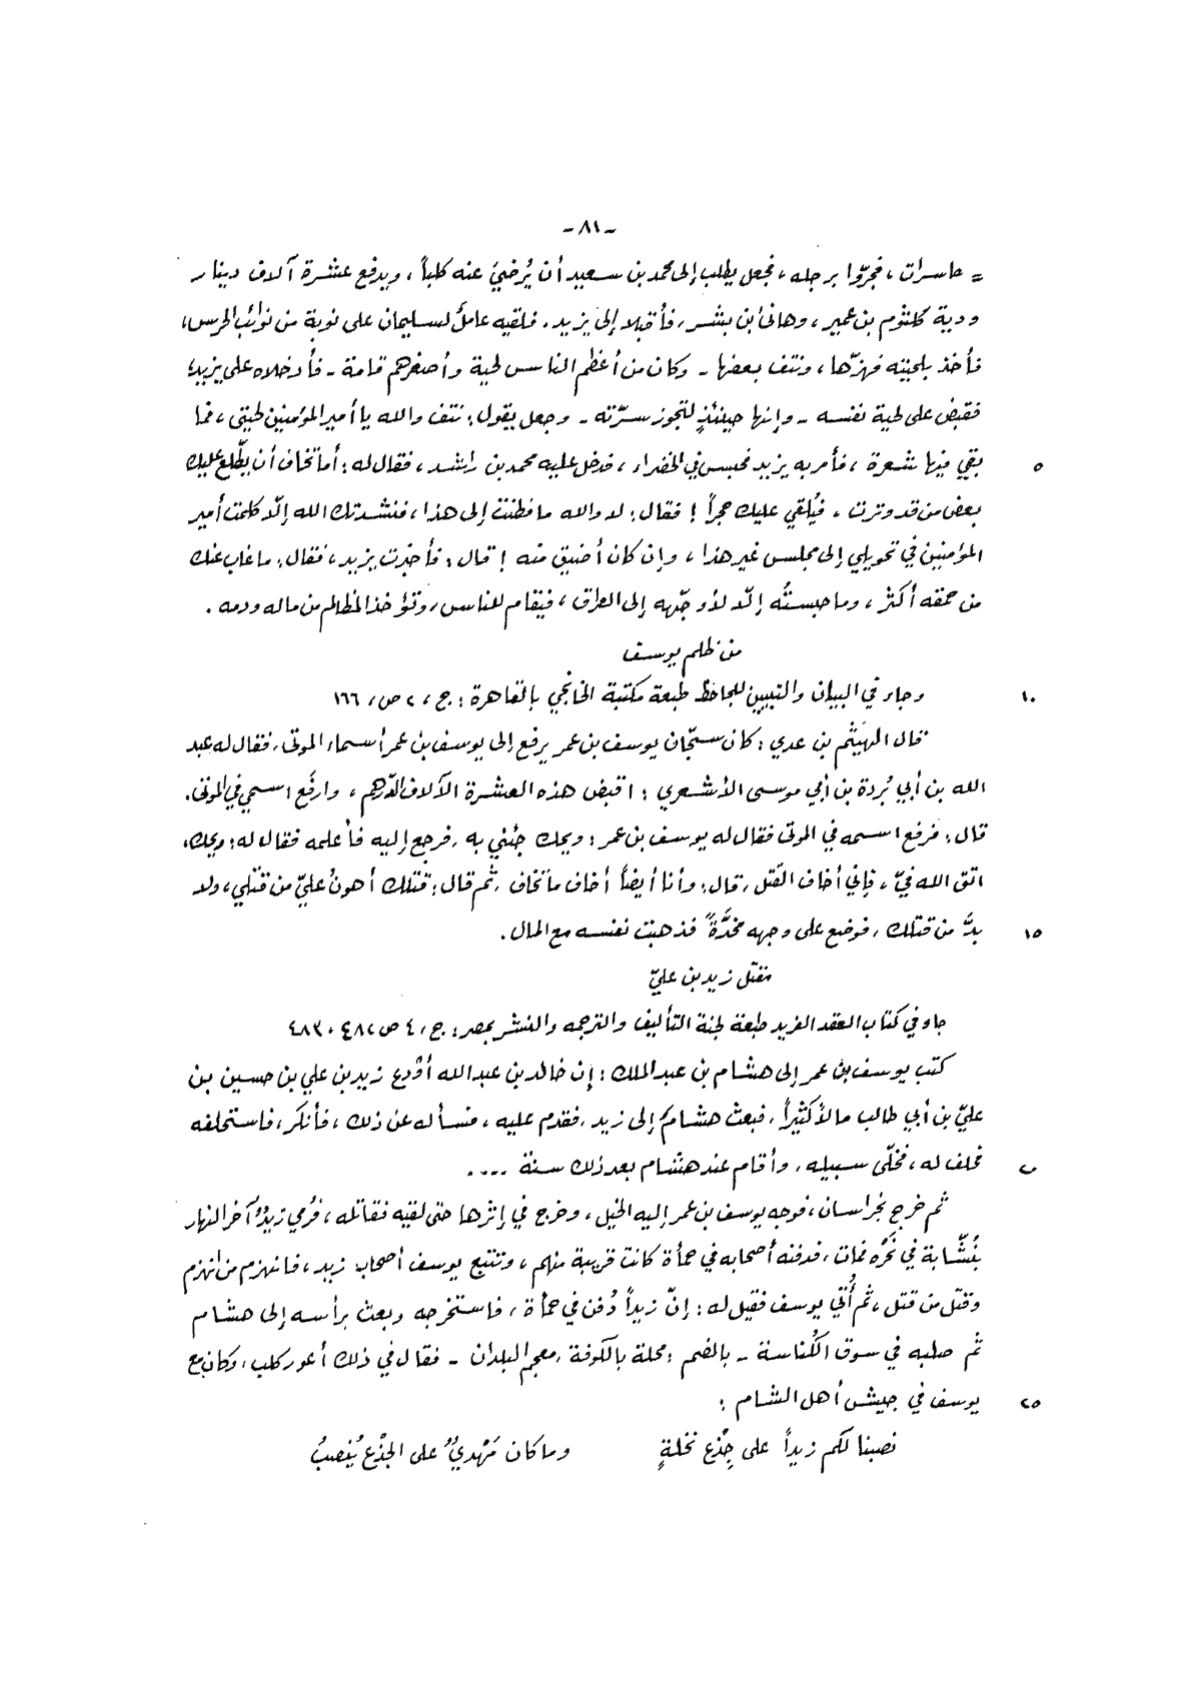 -٨١-
= حاسرات ، فجرّوا برجله ، فجعل يطلب إلى محمد بن سعيد أن يُرضيَ عنه كلباً ، ويدفع عشرة آلاف دينار
ودية كلثوم بن عمير ، وهانئ بن بشر ، فأقبلا إلى يزيد ، فلقيه عاملٌ لسليمان على نوبة من نوائب الحرس ،
فأخذ بلحيته فهزّها ، ونتف بعضها - وكان من أعظم الناس لحية وأصغرهم قامة - فأدخلاه على يزيد ،
فقبض على لحية نفسه - وإنها حينئذٍ لتجوز سرّته - وجعل يقول : نتف والله يا أمير المؤمنين لحيتي ، فما
٥ بقي فيها شعرة ، فأمر به يزيد فحبس في الخضراء ، فدخل عليه محمد بن راشد ، فقال له : أما تخاف أن يطّلع عليك
بعض من قد وترت ، فيُلقي عليك حجراً ! فقال : لا والله ما فطنت إلى هذا ، فنشدتك الله إلّا كلمت أمير
المؤمنين في تحويلي إلى مجلس غير هذا ، وإن كان أضيق منه ! قال : فأخبرت يزيد ، فقال : ما غاب عنك
من حمقه أكثر ، وما حبستُه إلّا لأوجّهه إلى العراق ، فيقام للناس ، وتؤخذ المظالم من ماله ودمه .
من ظلم يوسف
١٠ وجاء في البيان والتبيين للجاحظ طبعة مكتبة الخانجي بالقاهرة : ج ، ٢ ص ، ١٦٦
قال الهيثم بن عدي : كان سجّان يوسف بن عمر يرفع إلى يوسف بن عمر أسماء الموتى ، فقال له عبد
الله بن أبي بُردة بن أبي موسى الأشعري : اقبض هذه العشرة الآلاف الدّرهم ، وارفع اسمي في الموتى .
قال : فرفع اسمه في الموتى فقال له يوسف بن عمر : ويحك جئني به ، فرجع إليه فأعلمه فقال له : ويحك ،
اتق الله فيّ ، فإني أخاف القتل ، قال : وأنا أيضاً أخاف ما تخاف ، ثم قال : قتلك أهونُ عليّ من قتلي ، ولا
١٥ بدَّ من قتلك ، فوضع على وجهه مخدَّةً فذهبت نفسه مع المال .
مقتل زيد بن عليّ
جاء في كتاب العقد الفريد طبعة لجنة التأليف والترجمه والنشر بمصر : ج ، ٤ ص ، ٤٨٢ ، ٤٨٣
كتب يوسف بن عمر إلى هشام بن عبد الملك : إن خالد بن عبد الله أودع زيد بن علي بن حسين بن
عليّ بن أبي طالب مالاً كثيراً ، فبعث هشامٌ إلى زيد ، فقدم عليه ، فسأله عن ذلك ، فأنكر ، فاستحلفه
٢٠ فحلف له ، فخلّى سبيله ، وأقام عند هشام بعد ذلك سنة ....
ثم خرج بخراسان ، فوجه يوسف بن عمر إليه الخيل ، وخرج في إثرها حتى لقيه فقاتله ، فرُمي زيدٌ آخر النهار
بنُشّابة في نَحْره فمات ، فدفنه أصحابه في حمأة كانت قريبة منهم ، وتتبع يوسف أصحاب زيد ، فانهزم من انهزم
وقتل من قتل ، ثم أُتي يوسف فقيل له : إنّ زيداً دُفن في حمأة ، فاستخرجه وبعث برأسه إلى هشام
ثم صلبه في سوق الكُناسة - بالضم : محلة بالكوفة ، معجم البلدان - فقال في ذلك أعور كلب ، وكان مع
٢٥ يوسف في جيش أهل الشام :
نصبنا لكم زيداً على جِذْع نخلةٍ وما كان مَهْديٌّ على الجذْع يُنصبُ